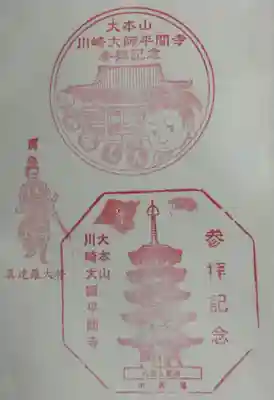 大本山
川崎大師平間寺
参拝記念
真達羅大将
参拝記念
大本山
川崎大師平間寺